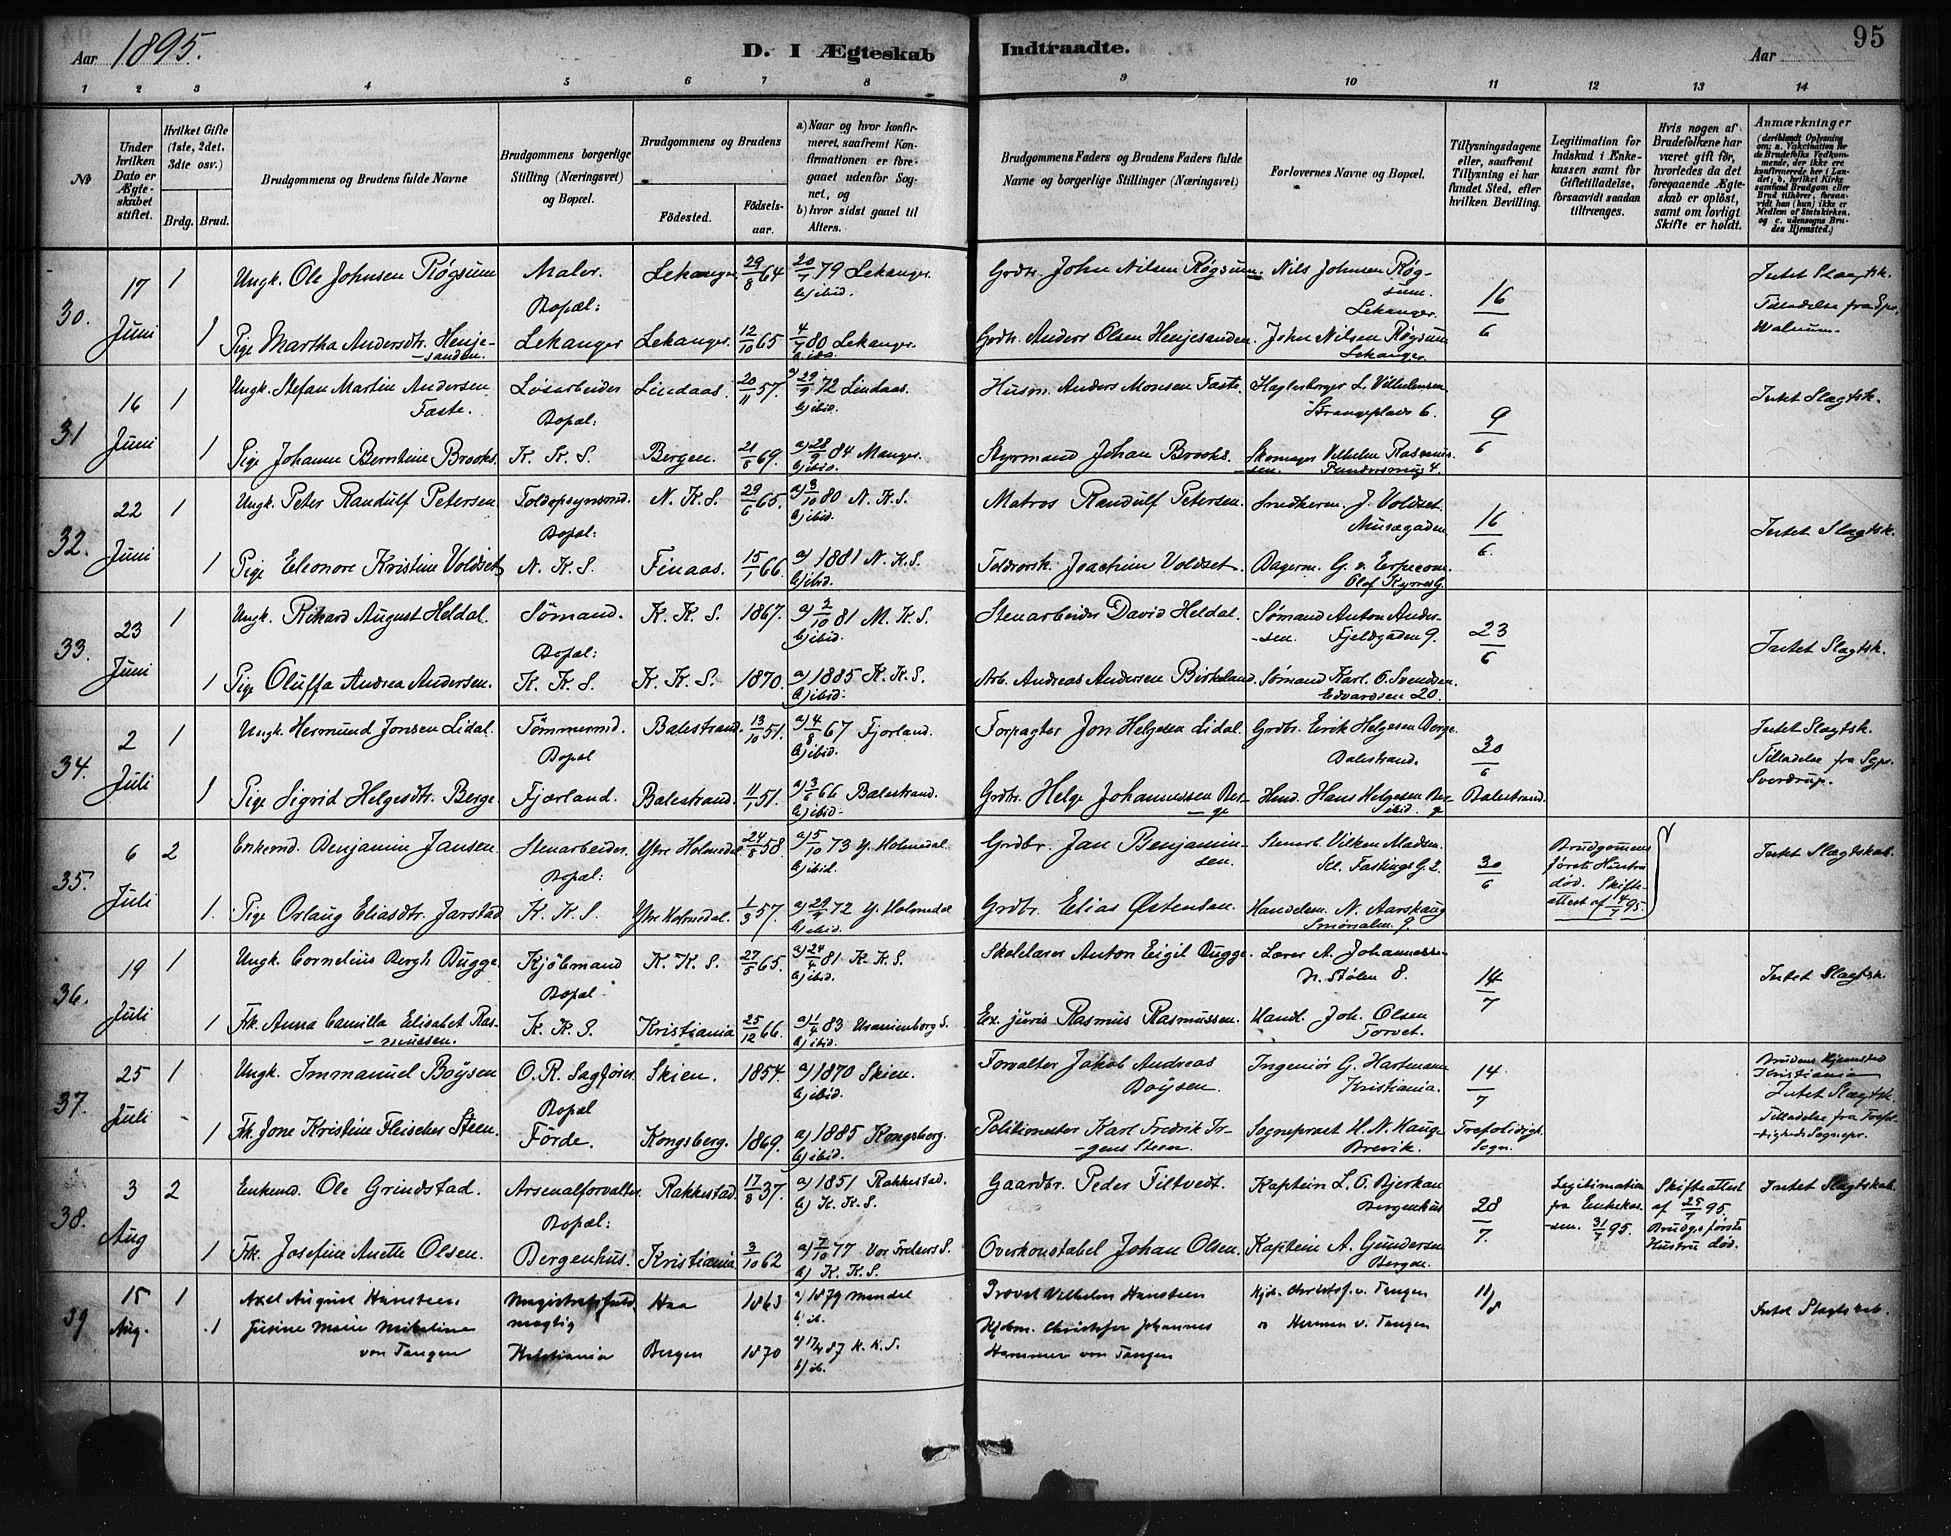 Aar 1895.
D. I Ægteskab
Indtraadte.
Aar
95
1 2 3 4 5 6 7 8 9 10 11 12 13 14
No
Under hvilken Dato er Ægteskabet stiftet.
Hvilket Gifte (1ste, 2det, 3die osv.)
Brdg. Brud.
Brudgommens og Brudens fulde Navne
Brudgommens borgerlige Stilling (Næringsvei) og Bopæl.
Brudgommens og Brudens
Födested.
Födsels-aar.
a) Naar og hvor konfirmeret, saafremt Konfirmationen er foregaaet udenfor Sognet, og
b) hvor sidst gaaet til Alters.
Brudgommens Faders og Brudens Faders fulde Navne og borgerlige Stillinger (Næringsvei)
Forlovernes Navne og Bopæl.
Tillysningsdagene eller, saafremt Tillysning ei har fundet Sted, efter hvilken Bevilling.
Legitimation for Indskud i Enkekassen samt for Giftetilladelse, forsaavidt saadan tiltrænges.
Hvis nogen af Brudefolkene har været gift för, hvorledes da det foregaaende Ægteskab er oplöst, samt om lovligt Skifte er holdt.
Anmærkninger
30. 17 Juni 1 Ungk. Ole Johnsen Røgsum Maler. Lekanger 29/8 64 20/7 79 Lekanger. b) ibid. Grdbr. John Nilsen Røgsum. Nils Johnsen Røgsum. Lekanger. 16/6 Intet Slagtsk.
Bopæl: Tilladelse fra Spr. Walnum.
1 Pige Martha Andersdtr. Henjesanden. Lekanger Lekanger. 12/10 65 4/7 80 Lekanger. Grdbr. Anders Olsen Henjesanden. John Nilsen Røgsum Lekanger.
31 16 Juni 1 Ungk. Stefan Martin Andersen Faste. Løsarbeider Lindaas. 20/11 57. a) 29/9 72 Lindaas. b) ibid. Husm. Anders Monsen Faste. L. Vilhelmsen Strangeplads 6. 9/6 Intet Slagtsk.
Bopæl:
1 Pige Johanne Berntine Brooks. K. K. S. Bergen. 21/8 69. a) 28/9 84 Manger. b) ibid. Styrmand Johan Brooks. Skomager Vilhelm Rasmussen. 4.
32. 22 Juni 1 Ungk. Peter Randulf Petersen Toldopsynsmd. N. K. S. 29/6 65. a) 3/10 80 N. K. S. b) ibid. Matros Randulf Petersen. Snedkerm. J. Voldset. Muségaden 16/6 Intet Slagtsk.
Bopæl:
1 Pige Eleonore Kristine Voldset N. K. S. Finaas. 15/1 66. a) 1881 N. K. S. b) ibid. Toldrorsk. Joachim Voldset. Bagerm. G. v. Erpecom Olaf Kyrres G.
33. 23 Juni 1 Ungk. Rikard August Heldal. Sømand. K. K. S. 1867. a) 2/10 81 M. K. S. b) ibid. Stenarbeider David Heldal. Sømand Anton Andersen. Fjeldgaden 9. 23/6 Intet Slagtsk.
Bopæl:
1 Pige Oluffa Andrea Andersen. K. K. S. K. K. S. 1870. a) 1885 K. K. S. b) ibid. Arb. Andreas Andersen Birkeland. Sømand Karl O. Svendsen. Edvardsen 20.
34. 2 Juli 1 Ungk. Hermund Jonsen Lidal. Tömmermd. Balestrand. 13/10 51. a) 4/8 67 Fjorland. b) ibid. Forpagter Jon Helgesen Lidal. Grdbr. Erik Helgesen Berge. Balestrand. 30/6 Intet Slagtsk.
Bopæl Tilladelse fra Sgpr. Sverdrup.
1 Pige Sigrid Helgesdtr. Berge Fjærland. Balestrand. 11/1 51. a) 3/6 66 Balestrand. b) ibid. Grdbr. Helge Johannessen Berge Hmd. Hans Helgesen Berge ibid. Balestrand.
35. 6 Juli 2 Enkemd. Benjamin Jansen. Stenarbeider. Ytre Holmedal 24/8 58. a) 5/10 73 Y. Holmedal b) ibid. Grdbr. Jan Benjaminsen. Stenarb. Vilken Madsen. Scl. Fastings G. 2. 30/6 Brudgommens første Hustru död. Skifteattest af 4/7 95. Intet Slagtskab.
Bopæl:
1. Pige Orlaug Eliasdtr. Jarstad K. K. S. Ytre Holmedal. 1/3 57. a) 29/9 72 Y. Holmedal b) ibid. Grdbr. Elias Østensen. Handelsm. N. Aarskaug Smörsalm. 9.
36. 19 Juli 1 Ungk. Cornelius Bergh Bugge. Kjöbmand K. K. S. 27/5 65. a) 24/4 81 K. K. S. b) ibid. Skolelærer Anton Eigil Bugge. Lærer A. Johannessen. N. Stölen 8. 14/7 Intet Slagtsk.
Bopæl
1 Frk. Anna Camilla Elisabet Rasmussen. K. K. S. Kristiania 25/12 66. a) 1/4 83 Uranienborg S. b) ibid. Ex. juris Rasmus Rasmussen. Hand. Joh. Olsen Torvet.
37. 25 Juli 1 Ungk. Immanuel Böysen O. R. Sagförer Skien. 1854. a) 1870 Skien. b) ibid. Forvalter Jakob Andreas Böysen. Ingeniör G. Hartmann Kristiania. 14/7 Brudens Hjemsted Kristiania Intet Slægtsk.
Bopæl Tilladelse fra Trefoldigheds Sognepr.
1 Frk. Jone Kristine Fleischer Steen. Förde. Kongsberg. 1869. a) 1885 Kongsberg. b) ibid. Politimester Karl Fredrik Irgens Steen. Sognepræst H. N. Hauge Brevik. Trefoldigh. Sogn.
38. 3 Aug 2 Enkemd. Ole Grindstad. Arsenalforvalter Rakkestad. 17/8 37. a) 1851 Rakkestad. b) K. K. S. Gaardbr. Peder Tiltvedt. Kaptein L. O. Bjerkan Bergenhus 28/7. Legitimation fra Enkekassen. 31/7 95. Skifteattest af 25/7 95. Brudg. første Hustru död. Intet Slagtskab.
Bopæl:
1 Frk. Josefine Anette Olsen. Bergenhus. Kristiania 3/10 62 a) 7/10 77 Vor Frelsers S. b) K. K. S. Overkonstabel Johan Olsen. Kaptein A. Gundersen Bergen.
39 15 Aug. 1 Axel August Hansteen. Magistratsfuldmægtig Haa 1863 a) 1879 Mandal b) ib. Provst Vilhelm Hansteen Kjb. Christof. v. Tangen 11/8 Intet Slagtskab.
1 Jusine Marie Mikeline von Tangen Kristiania Bergen 1870 a) 17/4 87 K. K. S. b) ib. Kjøbm. Christofer Johannes Hammer von Tangen " Herman v. Tangen